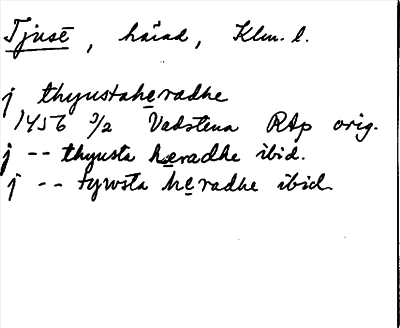 Tjusē, härad, Klm. l.
j thyustaheradhe
1456 3/2 Vadstena RAp orig.
j -- thyusta heradhe ibid.
j -- tywsta heradhe ibid